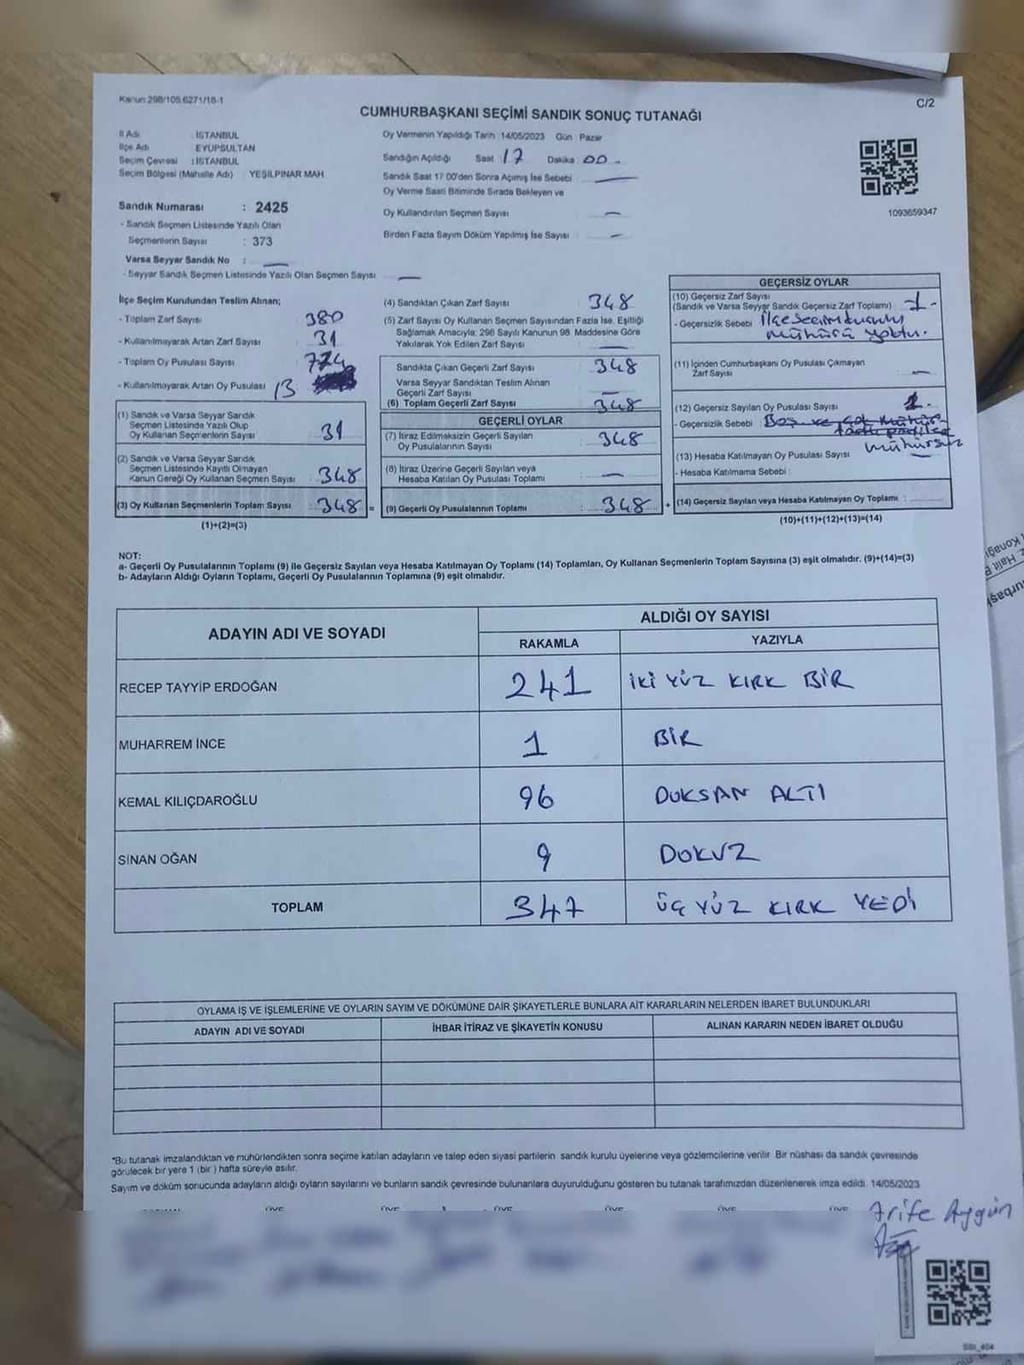 Kanun 298/105 6271/18-1
C/2
CUMHURBAŞKANI SEÇİMİ SANDIK SONUÇ TUTANAĞI
İl Adı : İSTANBUL
İlçe Adı : EYÜPSULTAN
Seçim Çevresi : İSTANBUL
Seçim Bölgesi (Mahalle Adı) YEŞİLPINAR MAH.
Sandık Numarası : 2425
- Sandık Seçmen Listesinde Yazılı Olan
Seçmenlerin Sayısı : 373
Varsa Seyyar Sandık No : —
- Seyyar Sandık Seçmen Listesinde Yazılı Olan Seçmen Sayısı —
Oy Vermenin Yapıldığı Tarih 14/05/2023 Gün Pazar
Sandığın Açıldığı Saat 17 Dakika 00
Sandık Saat 17 00'den Sonra Açımış İse Sebebi —
Oy Verme Saati Bitiminde Sırada Bekleyen ve
Oy Kullandırılan Seçmen Sayısı —
Birden Fazla Sayım Döküm Yapılmış İse Sayısı —
1093659347
İlçe Seçim Kurulundan Teslim Alınan;
- Toplam Zarf Sayısı 380
- Kullanılmayarak Artan Zarf Sayısı 31
- Toplam Oy Pusulası Sayısı 774
- Kullanılmayarak Artan Oy Pusulası 13
(1) Sandık ve Varsa Seyyar Sandık
Seçmen Listesinde Yazılı Olup
Oy Kullanan Seçmenlerin Sayısı 31
(2) Sandık ve Varsa Seyyar Sandık
Seçmen Listesinde Kayıtlı Olmayan
Kanun Gereği Oy Kullanan Seçmen Sayısı 348
(3) Oy Kullanan Seçmenlerin Toplam Sayısı 348 =
(1)+(2)=(3)
(4) Sandıktan Çıkan Zarf Sayısı 348
(5) Zarf Sayısı Oy Kullanan Seçmen Sayısından Fazla İse, Eşitliği
Sağlamak Amacıyla; 298 Sayılı Kanunun 98. Maddesine Göre
Yakılarak Yok Edilen Zarf Sayısı —
Sandıkta Çıkan Geçerli Zarf Sayısı 348
Varsa Seyyar Sandıktan Teslim Alınan
Geçerli Zarf Sayısı —
(6) Toplam Geçerli Zarf Sayısı 348
GEÇERLİ OYLAR
(7) İtiraz Edilmeksizin Geçerli Sayılan
Oy Pusulalarının Sayısı 348
(8) İtiraz Üzerine Geçerli Sayılan veya
Hesaba Katılan Oy Pusulası Toplamı —
(9) Geçerli Oy Pusulalarının Toplamı : 348 +
GEÇERSİZ OYLAR
(10) Geçersiz Zarf Sayısı
(Sandık ve Varsa Seyyar Sandık Geçersiz Zarf Toplamı) 1
- Geçersizlik Sebebi İlçe Seçim Kurulu
mührü yoktur.
(11) İçinden Cumhurbaşkanı Oy Pusulası Çıkmayan
Zarf Sayısı —
(12) Geçersiz Sayılan Oy Pusulası Sayısı 1
- Geçersizlik Sebebi Boş ve çok mühür
mühürsüz
(13) Hesaba Katılmayan Oy Pusulası Sayısı —
- Hesaba Katılmama Sebebi :
(14) Geçersiz Sayılan veya Hesaba Katılmayan Oy Toplamı :
(10)+(11)+(12)+(13)=(14)
NOT:
a- Geçerli Oy Pusulalarının Toplamı (9) ile Geçersiz Sayılan veya Hesaba Katılmayan Oy Toplamı (14) Toplamları, Oy Kullanan Seçmenlerin Toplam Sayısına (3) eşit olmalıdır. (9)+(14)=(3)
b- Adayların Aldığı Oyların Toplamı, Geçerli Oy Pusulalarının Toplamına (9) eşit olmalıdır.
ADAYIN ADI VE SOYADI
ALDIĞI OY SAYISI
RAKAMLA YAZIYLA
RECEP TAYYİP ERDOĞAN 241 İKİ YÜZ KIRK BİR
MUHARREM İNCE 1 BİR
KEMAL KILIÇDAROĞLU 96 DOKSAN ALTI
SİNAN OĞAN 9 DOKUZ
TOPLAM 347 ÜÇ YÜZ KIRK YEDİ
OYLAMA İŞ VE İŞLEMLERİNE VE OYLARIN SAYIM VE DÖKÜMÜNE DAİR ŞİKAYETLERLE BUNLARA AİT KARARLARIN NELERDEN İBARET BULUNDUKLARI
ADAYIN ADI VE SOYADI İHBAR İTİRAZ VE ŞİKAYETİN KONUSU ALINAN KARARIN NEDEN İBARET OLDUĞU
*Bu tutanak imzalandıktan ve mühürlendikten sonra seçime katılan adayların ve talep eden siyasi partilerin sandık kurulu üyelerine veya gözlemcilerine verilir. Bir nüshası da sandık çevresinde
görülecek bir yere 1 (bir) hafta süreyle asılır.
Sayım ve döküm sonucunda adayların aldığı oyların sayılarını ve bunların sandık çevresinde bulunanlara duyurulduğunu gösteren bu tutanak tarafımızdan düzenlenerek imza edildi. 14/05/2023
ÜYE ÜYE ÜYE ÜYE ÜYE ÜYE
Arife Aygün